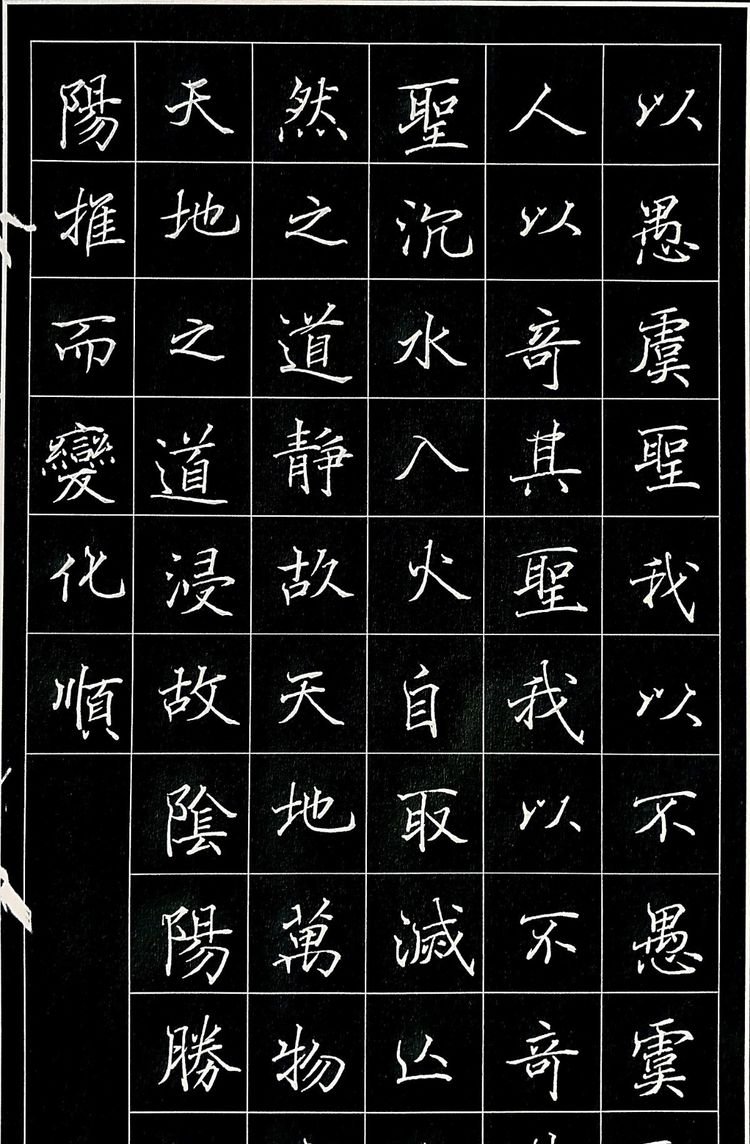 以愚虞聖我以不愚虞
人以奇其聖我以不奇
聖沉水入火自取滅亾
然之道靜故天地萬物
天地之道浸故陰陽勝
陽推而變化順